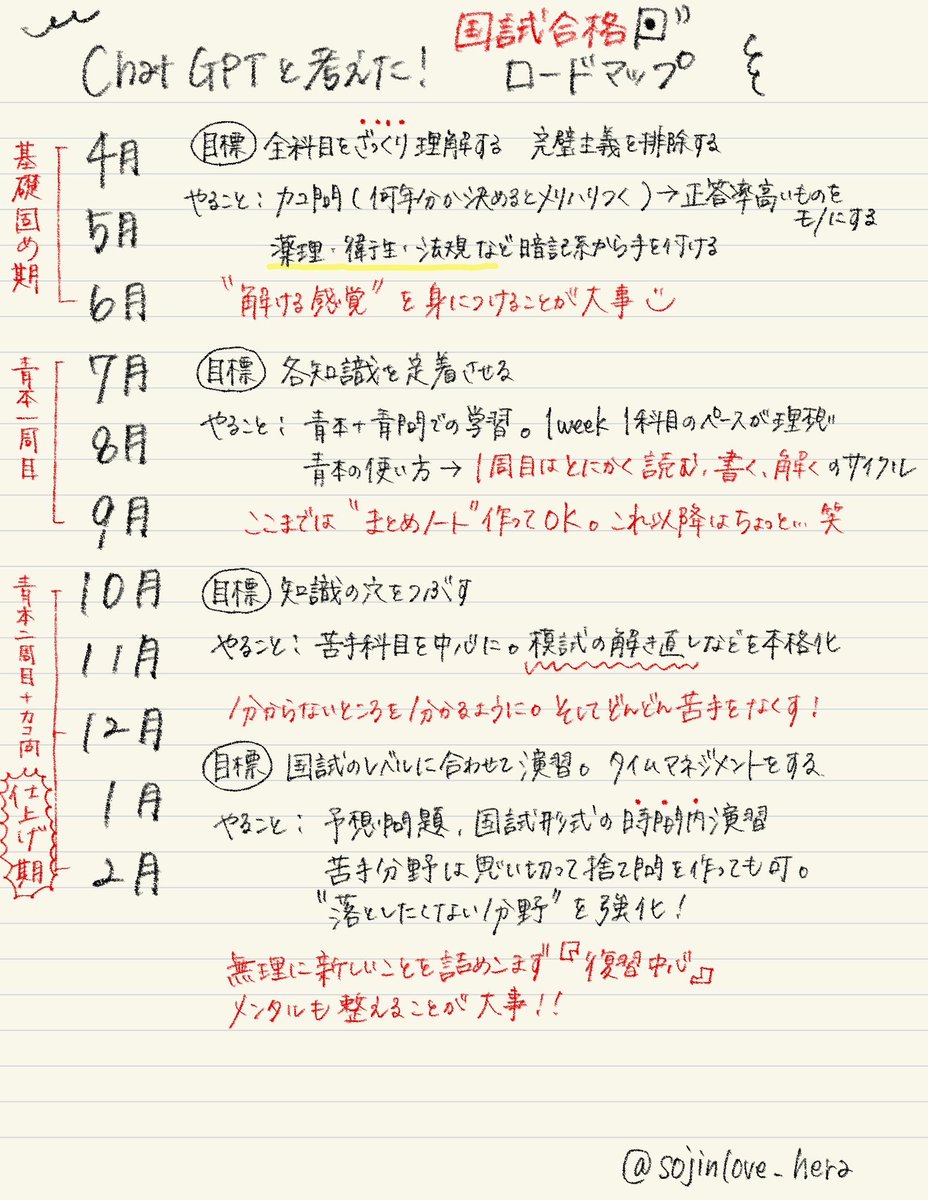 Chat GPTと考えた!
国試合格
ロードマップ
基礎固め期
4月
目標 全科目をざっくり理解する 完璧主義を排除する
やること: カコ問(何年分か決めるとメリハリつく)→正答率高いものを
モノにする
5月
薬理・衛生・法規など暗記系から手を付ける
6月
"解ける感覚"を身につけることが大事
青本一周目
7月
目標 各知識を定着させる
やること: 青本+青問での学習。1week 1科目のペースが理想
8月
青本の使い方→1周目はとにかく読む、書く、解くのサイクル
9月
ここまでは"まとめノート"作ってOK。これ以降はちょっと…笑
青本二周目+カコ問
10月
目標 知識の穴をつぶす
11月
やること: 苦手科目を中心に。模試の解き直しなどを本格化
12月
分からないところを分かるように。そしてどんどん苦手をなくす!
仕上げ期
目標 国試のレベルに合わせて演習。タイムマネジメントをする
1月
やること: 予想問題、国試形式の時間内演習
2月
苦手分野は思い切って捨て問を作っても可。
"落としたくない分野"を強化!
無理に新しいことを詰めこまず『復習中心』
メンタルも整えることが大事!!
@sojinlove_hera